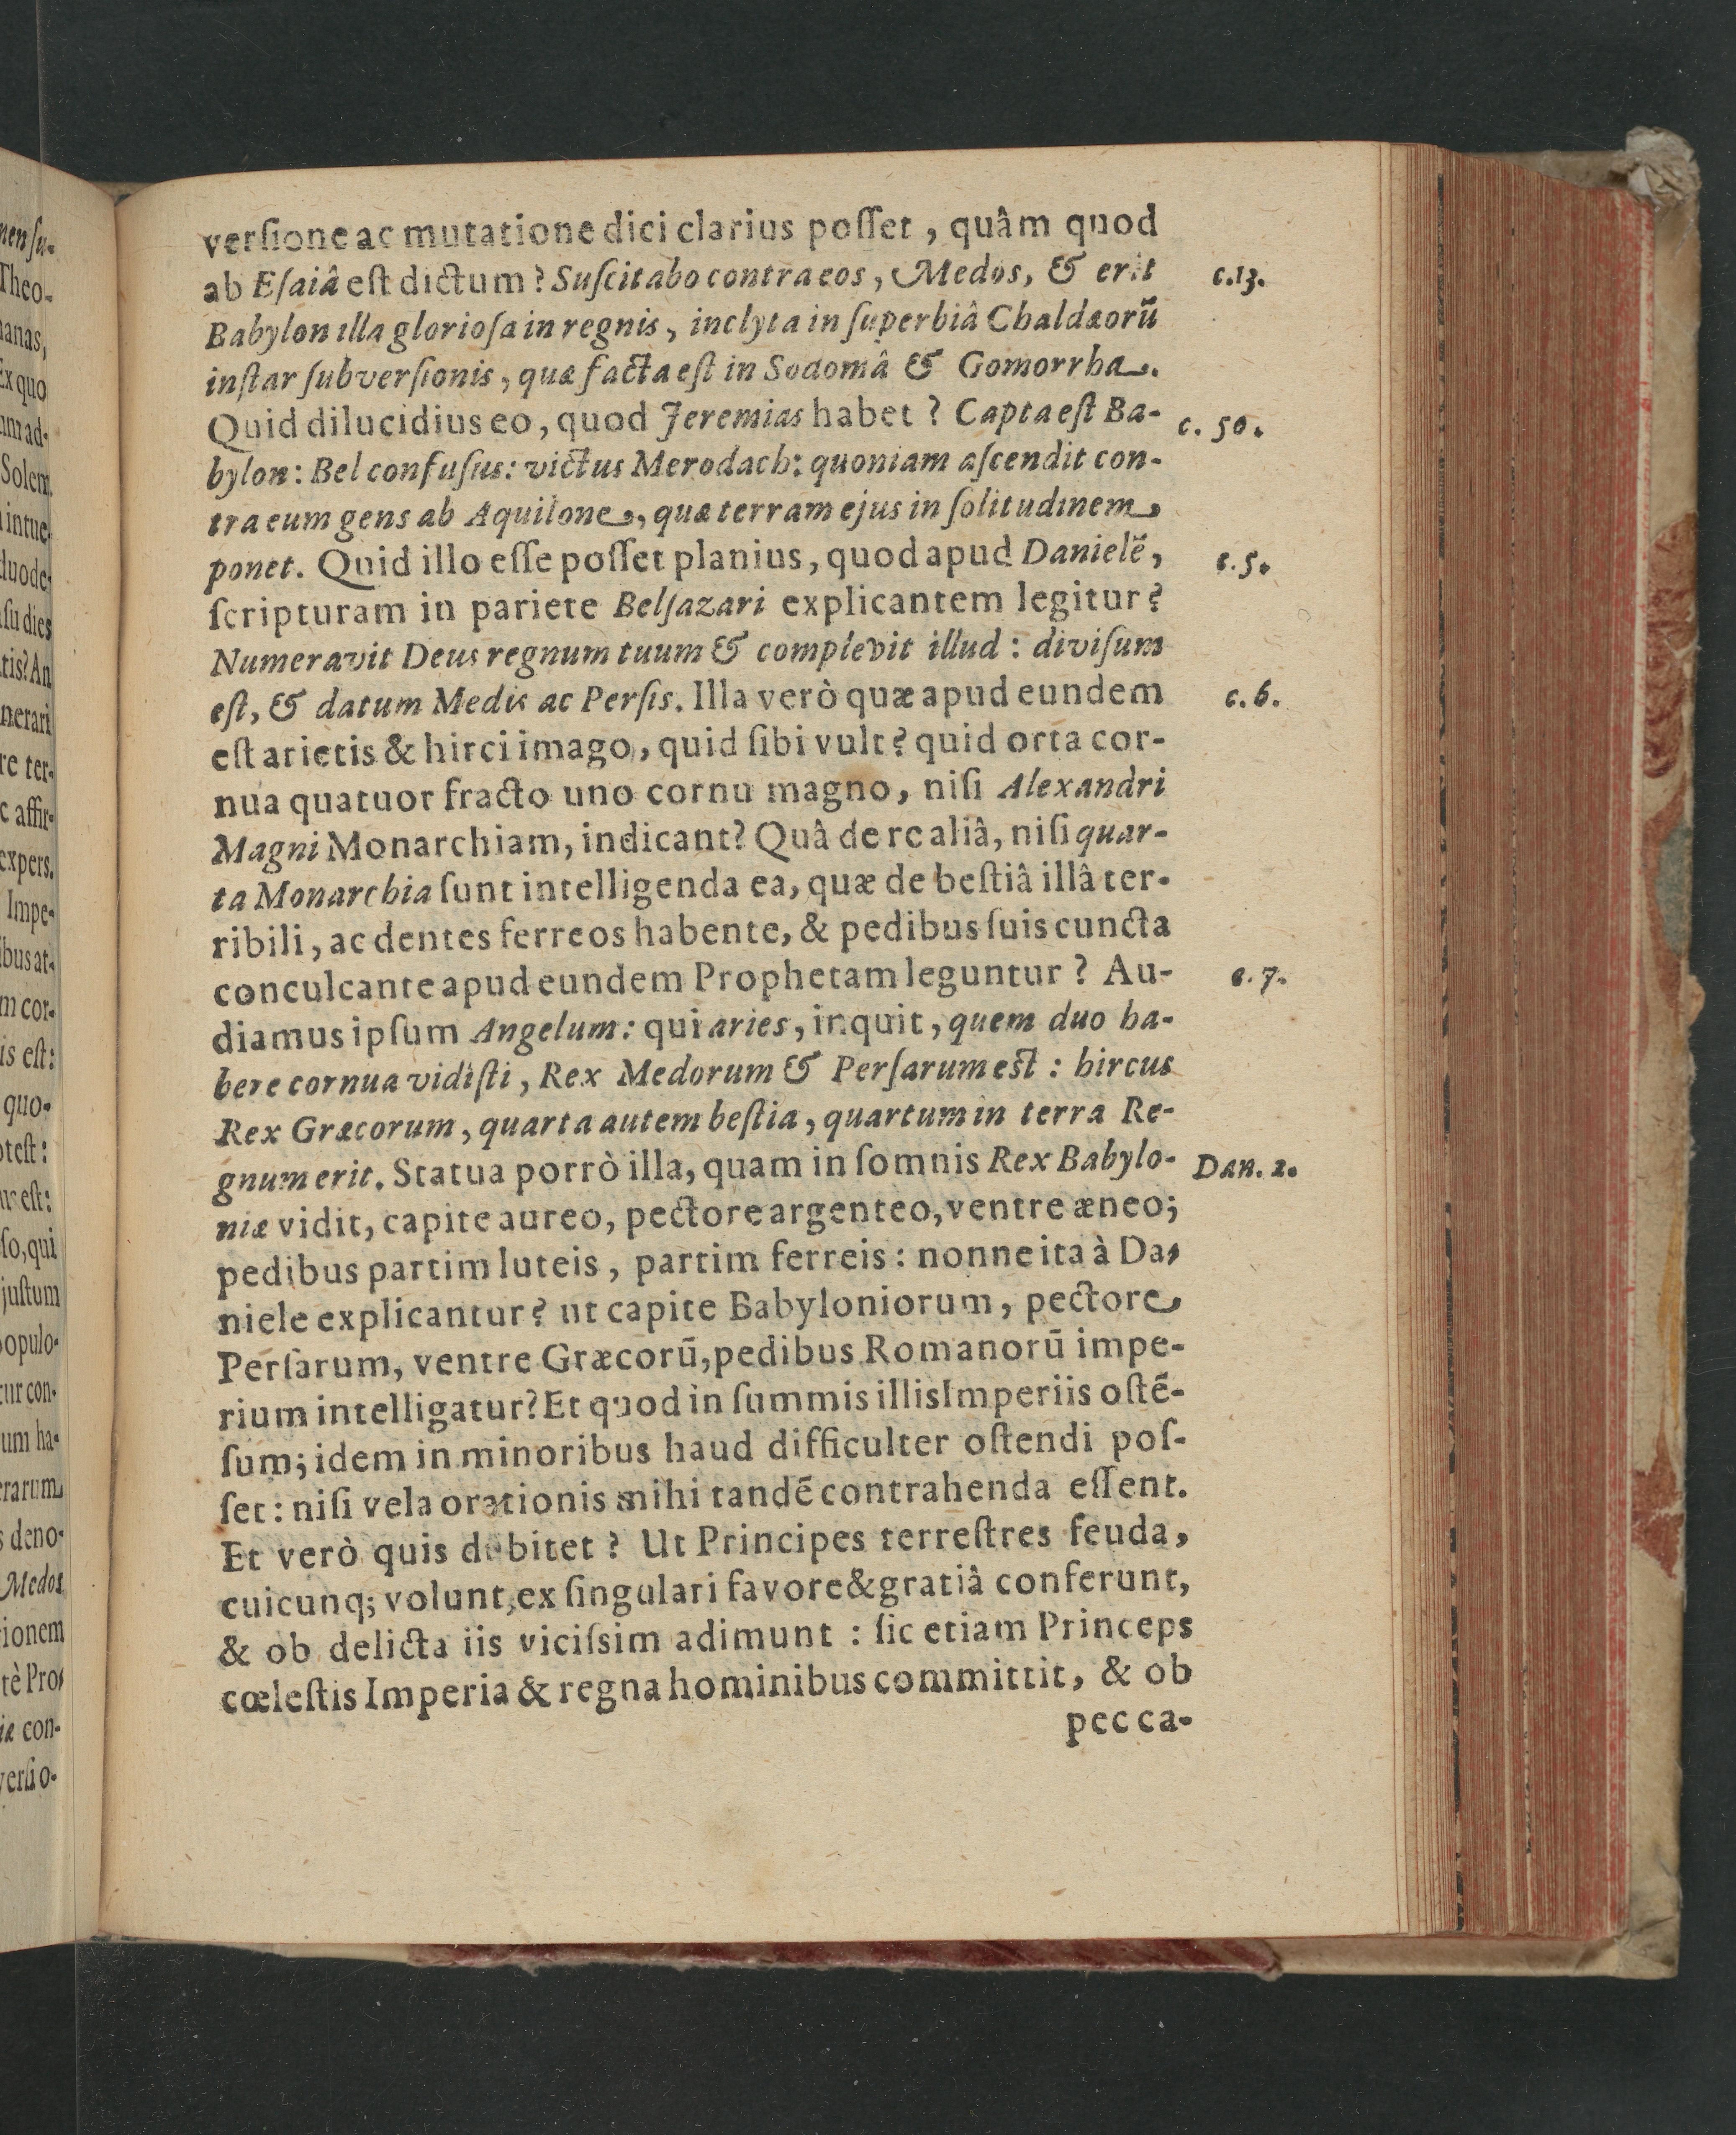 verſione ac mutatione dici clarius poſſet, quâm quod
ab Eſaiâ eſt dictum? Suſcitabo contra eos, Medos, & erit
c.13.
Babylon illa glorioſa in regnis, inclyta in ſuperbiâ Chaldæorũ
inſtar ſubverſionis, quæ facta eſt in Sodomâ & Gomorrha.
Quid dilucidius eo, quod Jeremias habet? Capta eſt Ba-
c. 50.
bylon: Bel confuſus: victus Merodach: quoniam aſcendit con-
tra eum gens ab Aquilone, quæ terram ejus in ſolitudinem
ponet. Quid illo eſſe poſſet planius, quod apud Danielẽ,
c.5.
ſcripturam in pariete Belſazari explicantem legitur?
Numeravit Deus regnum tuum & complevit illud: diviſum
eſt, & datum Medis ac Perſis. Illa verò quæ apud eundem
c.6.
eſt arietis & hirci imago, quid ſibi vult? quid orta cor-
nua quatuor fracto uno cornu magno, niſi Alexandri
Magni Monarchiam, indicant? Quâ de re aliâ, niſi quar-
ta Monarchia ſunt intelligenda ea, quæ de beſtiâ illâ ter-
ribili, ac dentes ferreos habente, & pedibus ſuis cuncta
conculcante apud eundem Prophetam leguntur? Au-
c.7.
diamus ipſum Angelum: qui aries, inquit, quem duo ha-
bere cornua vidiſti, Rex Medorum & Perſarum eſt: hircus
Rex Græcorum, quarta autem beſtia, quartum in terra Re-
gnum erit. Statua porrò illa, quam in ſomnis Rex Babylo-
Dan. 2.
niæ vidit, capite aureo, pectore argenteo, ventre æneo;
pedibus partim luteis, partim ferreis: nonne ita à Da-
niele explicantur? ut capite Babyloniorum, pectore
Perſarum, ventre Græcorũ, pedibus Romanorũ impe-
rium intelligatur? Et quod in ſummis illis Imperiis oſtẽ-
ſum; idem in minoribus haud difficulter oſtendi poſ-
ſet: niſi vela orationis mihi tandẽ contrahenda eſſent.
Et verò quis dubitet? Ut Principes terreſtres feuda,
cuicunq; volunt, ex ſingulari favore & gratiâ conferunt,
& ob delicta iis viciſsim adimunt: ſic etiam Princeps
cœleſtis Imperia & regna hominibus committit, & ob
pecca-